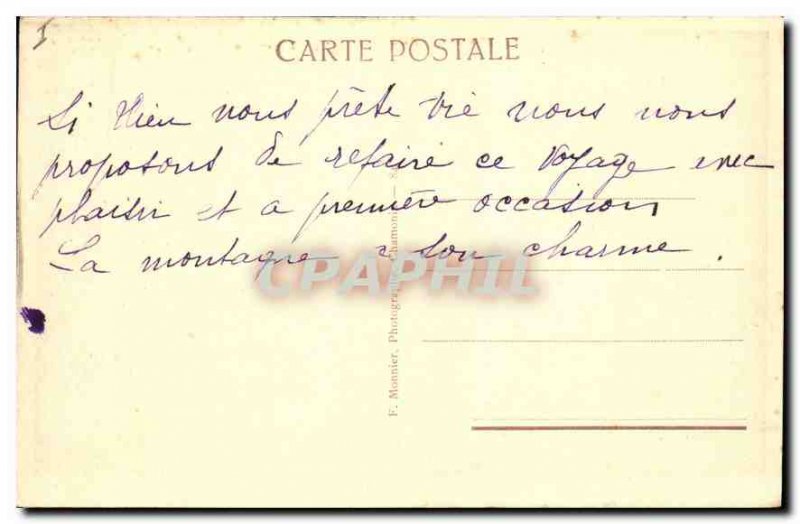 I
CARTE POSTALE
Si Dieu nous prête vie nous nous
proposons de refaire ce voyage avec
plaisir et a première occasion
La montagne a son charme.
CPAPHIL
F. Monnier, Photographe, Chamonix